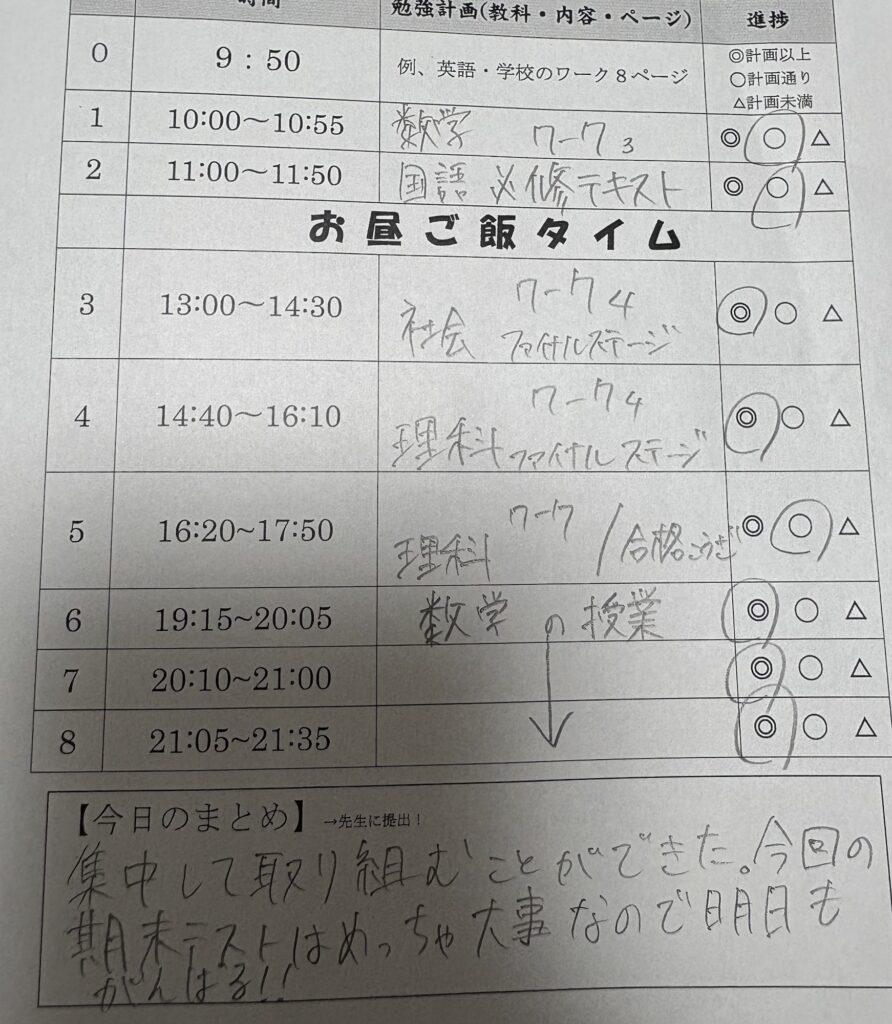 時間 勉強計画(教科・内容・ページ) 進捗
0 9:50 例、英語・学校のワーク8ページ ◎計画以上
○計画通り
△計画未満
1 10:00～10:55 数学 ワーク3 ◎ ○ △
2 11:00～11:50 国語 必修テキスト ◎ ○ △
お昼ご飯タイム
3 13:00～14:30 ワーク4 ◎ ○ △
社会 ファイナルステージ
4 14:40～16:10 ワーク4 ◎ ○ △
理科 ファイナルステージ
5 16:20~17:50 ワーク ◎ ○ △
理科 / 合格こうざ
6 19:15~20:05 数学の授業 ◎ ○ △
7 20:10~21:00 ◎ ○ △
8 21:05~21:35 ◎ ○ △
【今日のまとめ】→先生に提出！
集中して取り組むことができた。今回の
期末テストはめっちゃ大事なので明日も
がんばる!!